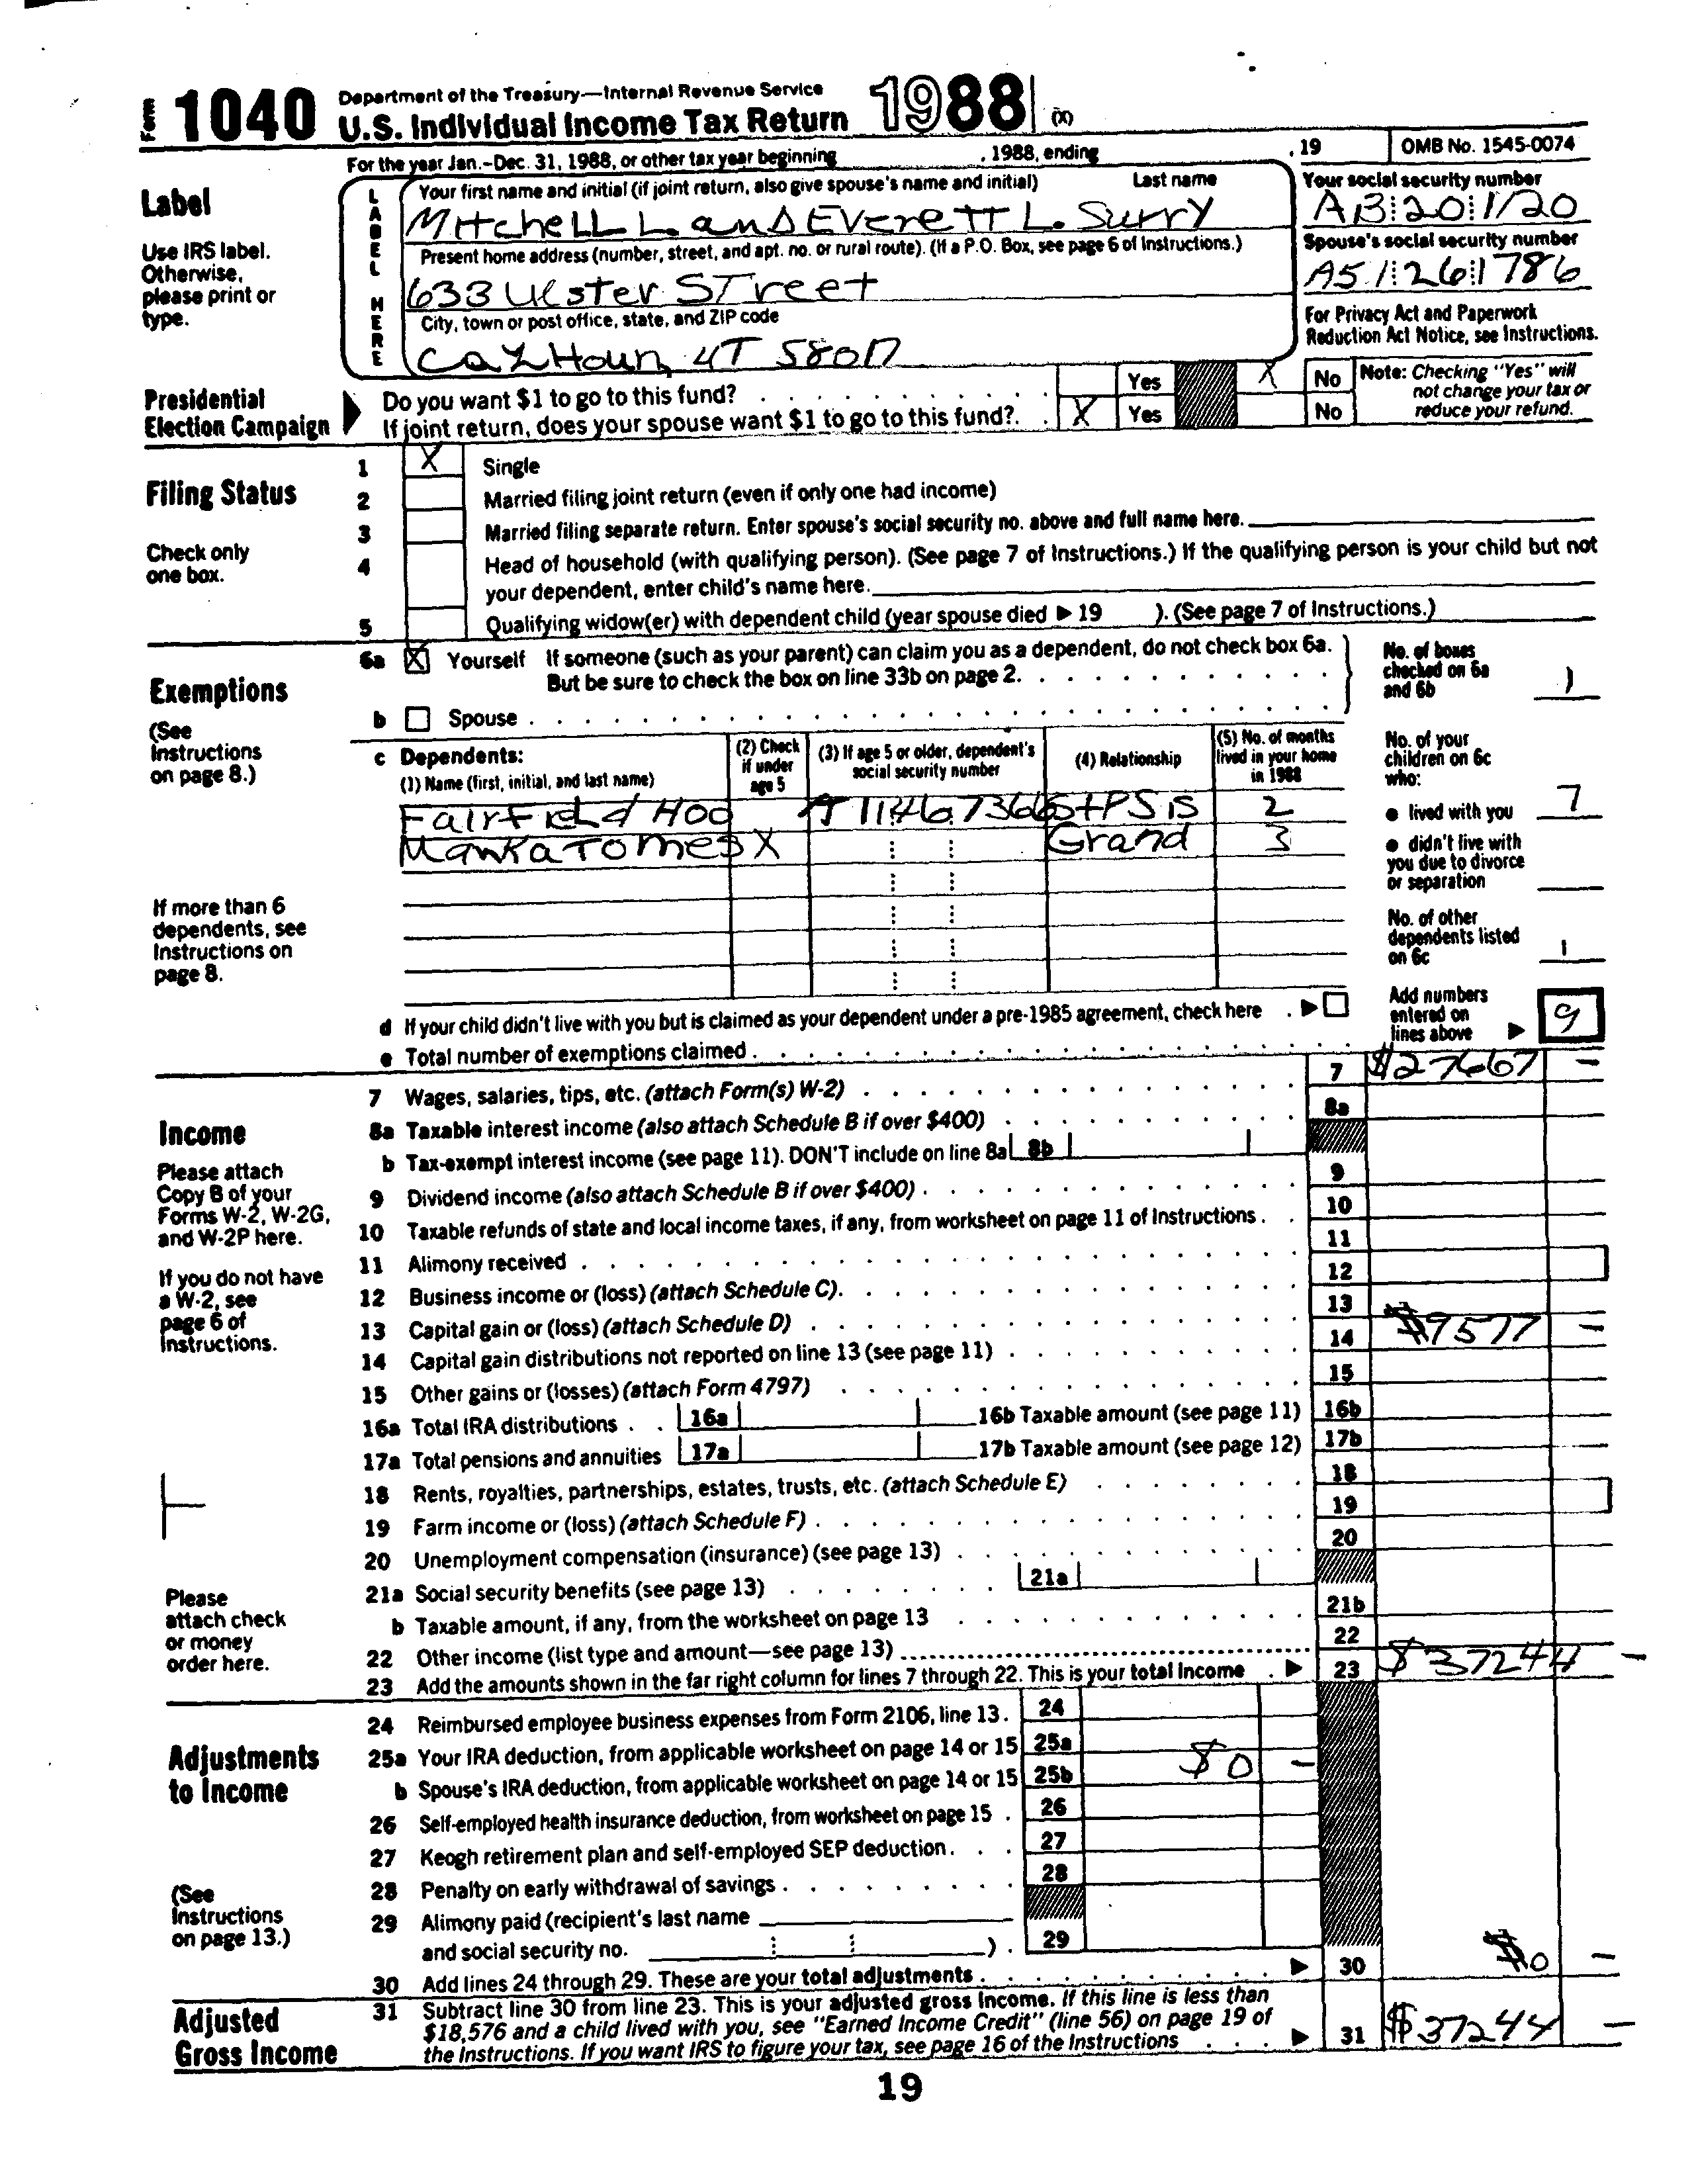 Form 1040 Department of the Treasury—Internal Revenue Service
U.S. Individual Income Tax Return 1988 (X)
For the year Jan.-Dec. 31, 1988, or other tax year beginning , 1988, ending , 19 OMB No. 1545-0074
Label
Use IRS label. Otherwise, please print or type.
LABEL HERE
Your first name and initial (if joint return, also give spouse's name and initial) Last name
Mitchell L. and Everett L. Surry
Your social security number
AB 20 1120
Present home address (number, street, and apt. no. or rural route). (If a P.O. Box, see page 6 of Instructions.)
633 Ulster Street
Spouse's social security number
A51 26 1786
City, town or post office, state, and ZIP code
CalHoun, UT 58017
For Privacy Act and Paperwork Reduction Act Notice, see Instructions.
Presidential Election Campaign
Do you want $1 to go to this fund? Yes X No
If joint return, does your spouse want $1 to go to this fund? X Yes No
Note: Checking "Yes" will not change your tax or reduce your refund.
Filing Status
Check only one box.
1 X Single
2 Married filing joint return (even if only one had income)
3 Married filing separate return. Enter spouse's social security no. above and full name here.
4 Head of household (with qualifying person). (See page 7 of Instructions.) If the qualifying person is your child but not
your dependent, enter child's name here.
5 Qualifying widow(er) with dependent child (year spouse died ▶ 19 ). (See page 7 of Instructions.)
Exemptions
(See Instructions on page 8.)
6a X Yourself If someone (such as your parent) can claim you as a dependent, do not check box 6a.
But be sure to check the box on line 33b on page 2.
b Spouse
No. of boxes checked on 6a and 6b 1
c Dependents:
(1) Name (first, initial, and last name)
(2) Check if under age 5
(3) If age 5 or older, dependent's social security number
(4) Relationship
(5) No. of months lived in your home in 1988
Fairfield Hoo 2
X Grand 3
No. of your children on 6c who:
● lived with you 7
● didn't live with you due to divorce or separation
No. of other dependents listed on 6c 1
If more than 6 dependents, see Instructions on page 8.
d If your child didn't live with you but is claimed as your dependent under a pre-1985 agreement, check here ▶
e Total number of exemptions claimed
Add numbers entered on lines above ▶ 9
Income
Please attach Copy B of your Forms W-2, W-2G, and W-2P here.
If you do not have a W-2, see page 6 of Instructions.
Please attach check or money order here.
7 Wages, salaries, tips, etc. (attach Form(s) W-2) 7 $27667 –
8a Taxable interest income (also attach Schedule B if over $400) 8a
b Tax-exempt interest income (see page 11). DON'T include on line 8a 8b
9 Dividend income (also attach Schedule B if over $400) 9
10 Taxable refunds of state and local income taxes, if any, from worksheet on page 11 of Instructions 10
11 Alimony received 11
12 Business income or (loss) (attach Schedule C) 12
13 Capital gain or (loss) (attach Schedule D) 13
14 Capital gain distributions not reported on line 13 (see page 11) 14 $9577 –
15 Other gains or (losses) (attach Form 4797) 15
16a Total IRA distributions 16a 16b Taxable amount (see page 11) 16b
17a Total pensions and annuities 17a 17b Taxable amount (see page 12) 17b
18 Rents, royalties, partnerships, estates, trusts, etc. (attach Schedule E) 18
19 Farm income or (loss) (attach Schedule F) 19
20 Unemployment compensation (insurance) (see page 13) 20
21a Social security benefits (see page 13) 21a
b Taxable amount, if any, from the worksheet on page 13 21b
22 Other income (list type and amount—see page 13) 22
23 Add the amounts shown in the far right column for lines 7 through 22. This is your total income ▶ 23 $37244 –
Adjustments to Income
(See Instructions on page 13.)
24 Reimbursed employee business expenses from Form 2106, line 13 24
25a Your IRA deduction, from applicable worksheet on page 14 or 15 25a
b Spouse's IRA deduction, from applicable worksheet on page 14 or 15 25b $0 –
26 Self-employed health insurance deduction, from worksheet on page 15 26
27 Keogh retirement plan and self-employed SEP deduction 27
28 Penalty on early withdrawal of savings 28
29 Alimony paid (recipient's last name
and social security no. ) 29
30 Add lines 24 through 29. These are your total adjustments ▶ 30 $0 –
Adjusted Gross Income
31 Subtract line 30 from line 23. This is your adjusted gross income. If this line is less than
$18,576 and a child lived with you, see "Earned Income Credit" (line 56) on page 19 of
the Instructions. If you want IRS to figure your tax, see page 16 of the Instructions ▶ 31 $37244 –
19